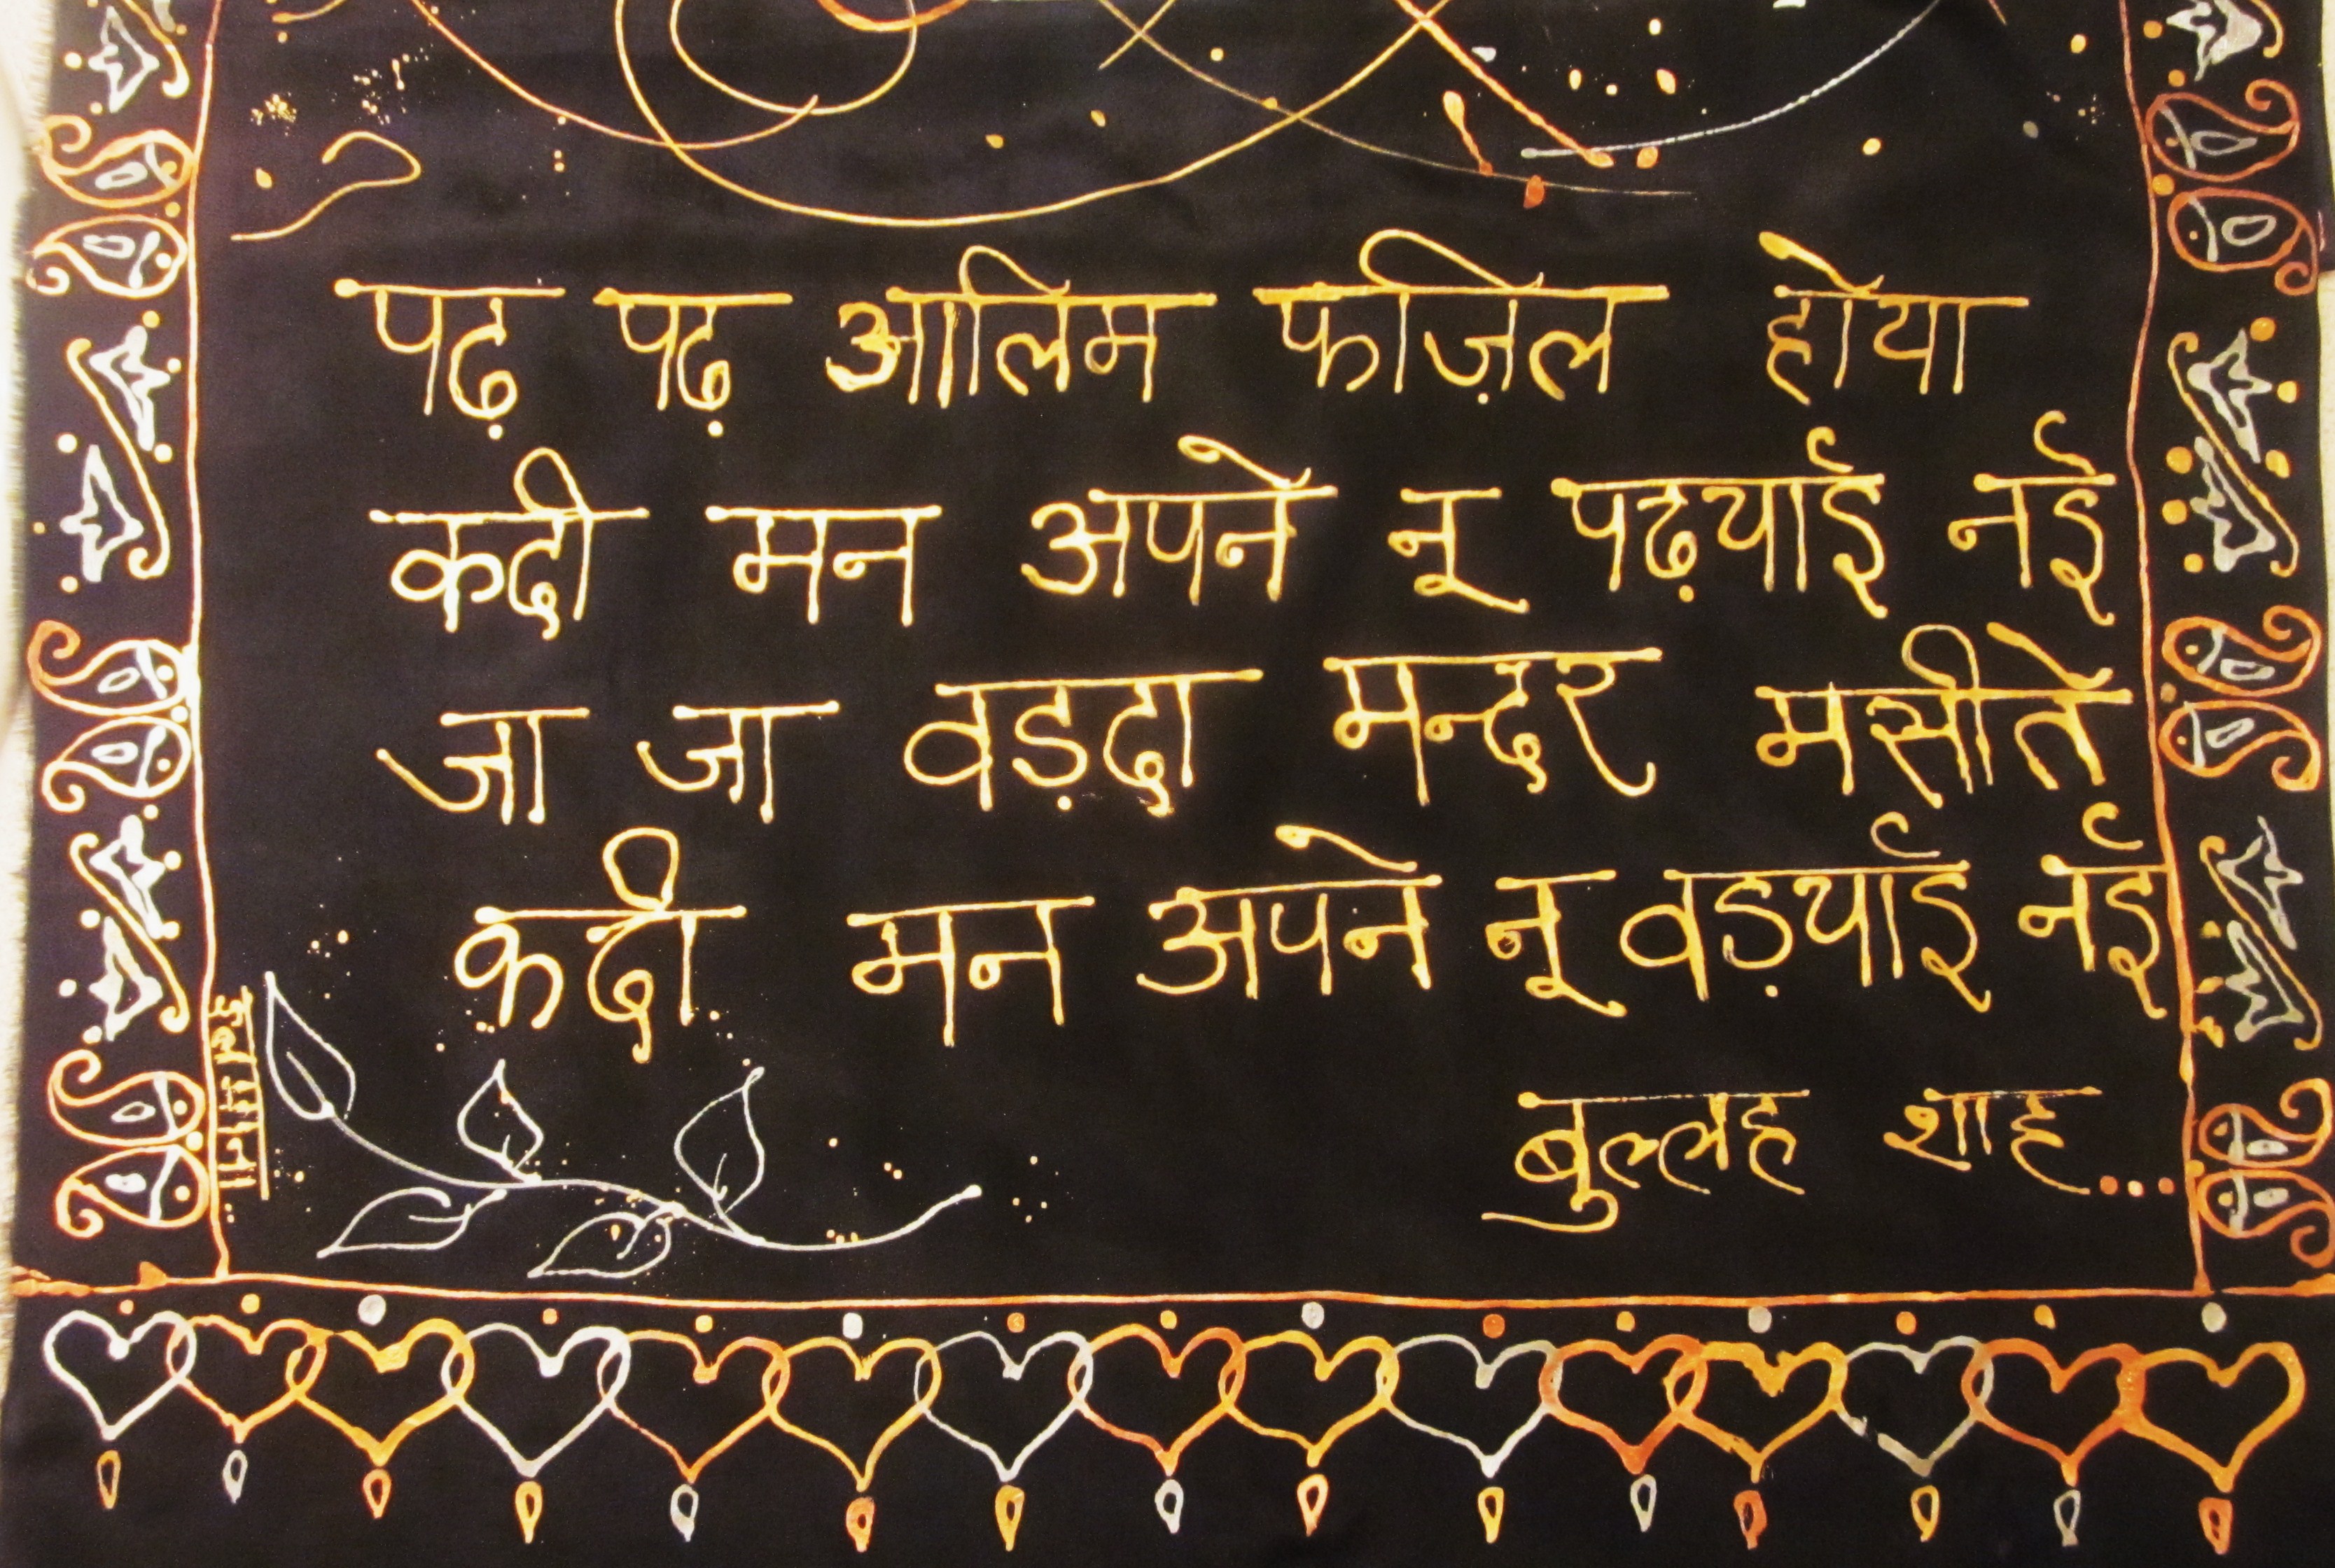 पढ़ पढ़ आलिम फाज़िल होया
कदी मन अपने नू पढ़याई नई
जा जा वड़दा मन्दर मसीते
कदी मन अपने नू वड़याई नई
बुल्लह शाह...